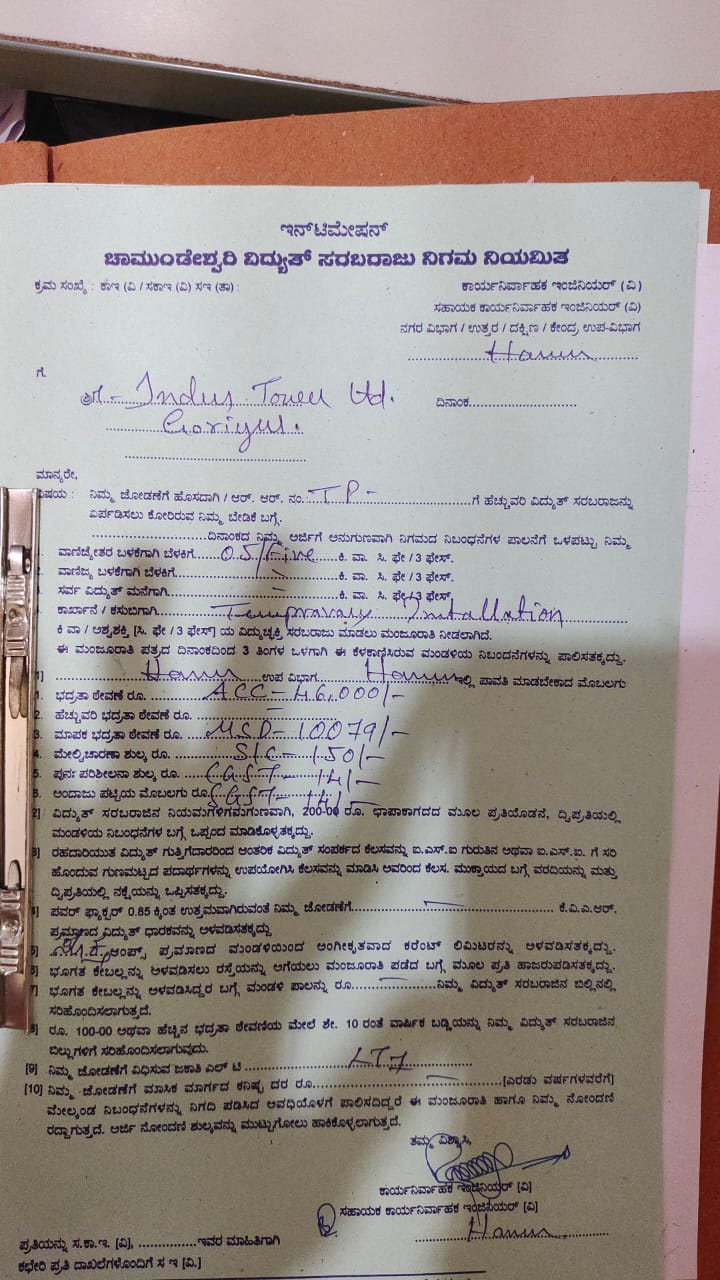 ಇನ್‌ಟಿಮೇಷನ್
ಚಾಮುಂಡೇಶ್ವರಿ ವಿದ್ಯುತ್ ಸರಬರಾಜು ನಿಗಮ ನಿಯಮಿತ
ಕ್ರಮ ಸಂಖ್ಯೆ : ಕಾಇ (ವಿ / ಸಕಾಇ (ವಿ) ಸಇ (ತಾ) :
ಕಾರ್ಯನಿರ್ವಾಹಕ ಇಂಜಿನಿಯರ್ (ವಿ)
ಸಹಾಯಕ ಕಾರ್ಯನಿರ್ವಾಹಕ ಇಂಜಿನಿಯರ್ (ವಿ)
ನಗರ ವಿಭಾಗ / ಉತ್ತರ / ದಕ್ಷಿಣ / ಕೇಂದ್ರ ಉಪ-ವಿಭಾಗ
Hanur
ಗೆ.
Indus Tower Ltd.
ದಿನಾಂಕ
ಮಾನ್ಯರೇ,
ವಿಷಯ : ನಿಮ್ಮ ಜೋಡಣೆಗೆ ಹೊಸದಾಗಿ / ಆರ್. ಆರ್. ನಂ. TP - ಗೆ ಹೆಚ್ಚುವರಿ ವಿದ್ಯುತ್ ಸರಬರಾಜನ್ನು
ಏರ್ಪಡಿಸಲು ಕೋರಿರುವ ನಿಮ್ಮ ಬೇಡಿಕೆ ಬಗ್ಗೆ.
ದಿನಾಂಕದ ನಿಮ್ಮ ಅರ್ಜಿಗೆ ಅನುಗುಣವಾಗಿ ನಿಗಮದ ನಿಬಂಧನೆಗಳ ಪಾಲನೆಗೆ ಒಳಪಟ್ಟು ನಿಮ್ಮ
ವಾಣಿಜ್ಯೇತರ ಬಳಕೆಗಾಗಿ ಬೆಳಕಿಗೆ 05/Five ಕಿ. ವಾ. ಸಿ. ಫೇ / 3 ಫೇಸ್.
ವಾಣಿಜ್ಯ ಬಳಕೆಗಾಗಿ ಬೆಳಕಿಗೆ ಕಿ. ವಾ. ಸಿ. ಫೇ / 3 ಫೇಸ್.
ಸರ್ವ ವಿದ್ಯುತ್ ಮನೆಗಾಗಿ ಕಿ. ವಾ. ಸಿ. ಫೇ / 3 ಫೇಸ್.
ಕಾರ್ಖಾನೆ / ಕಸುಬಿಗಾಗಿ Temporary Installation
ಕಿ ವಾ / ಅಶ್ವಶಕ್ತಿ [ಸಿ. ಫೇ / 3 ಫೇಸ್] ಯ ವಿದ್ಯುಚ್ಛಕ್ತಿ ಸರಬರಾಜು ಮಾಡಲು ಮಂಜೂರಾತಿ ನೀಡಲಾಗಿದೆ.
ಈ ಮಂಜೂರಾತಿ ಪತ್ರದ ದಿನಾಂಕದಿಂದ 3 ತಿಂಗಳ ಒಳಗಾಗಿ ಈ ಕೆಳಕಾಣಿಸಿರುವ ಮಂಡಳಿಯ ನಿಬಂದನೆಗಳನ್ನು ಪಾಲಿಸತಕ್ಕದ್ದು.
1] Hanur ಉಪ ವಿಭಾಗ Hanur ಇಲ್ಲಿ ಪಾವತಿ ಮಾಡಬೇಕಾದ ಮೊಬಲಗು
1. ಭದ್ರತಾ ಠೇವಣೆ ರೂ. ACC - 46,000/-
2. ಹೆಚ್ಚುವರಿ ಭದ್ರತಾ ಠೇವಣೆ ರೂ. -
3. ಮಾಪಕ ಭದ್ರತಾ ಠೇವಣೆ ರೂ. MSD - 10079/-
4. ಮೇಲ್ವಿಚಾರಣಾ ಶುಲ್ಕ ರೂ. S/C - 150/-
5. ಪುನಃ ಪರಿಶೀಲನಾ ಶುಲ್ಕ ರೂ. CGST - 14/-
6. ಅಂದಾಜು ಪಟ್ಟಿಯ ಮೊಬಲಗು ರೂ. SGST - 14/-
2] ವಿದ್ಯುತ್ ಸರಬರಾಜಿನ ನಿಯಮಗಳಿಗನುಗುಣವಾಗಿ, 200-00 ರೂ. ಛಾಪಾಕಾಗದದ ಮೂಲ ಪ್ರತಿಯೊಡನೆ, ದ್ವಿಪ್ರತಿಯಲ್ಲಿ
ಮಂಡಳಿಯ ನಿಬಂಧನೆಗಳ ಬಗ್ಗೆ ಒಪ್ಪಂದ ಮಾಡಿಕೊಳ್ಳತಕ್ಕದ್ದು.
3] ರಹದಾರಿಯುತ ವಿದ್ಯುತ್ ಗುತ್ತಿಗೆದಾರರಿಂದ ಆಂತರಿಕ ವಿದ್ಯುತ್ ಸಂಪರ್ಕದ ಕೆಲಸವನ್ನು ಐ.ಎಸ್.ಐ ಗುರುತಿನ ಅಥವಾ ಐ.ಎಸ್.ಐ. ಗೆ ಸರಿ
ಹೊಂದುವ ಗುಣಮಟ್ಟದ ಪದಾರ್ಥಗಳನ್ನು ಉಪಯೋಗಿಸಿ ಕೆಲಸವನ್ನು ಮಾಡಿಸಿ ಅವರಿಂದ ಕೆಲಸ. ಮುಕ್ತಾಯದ ಬಗ್ಗೆ ವರದಿಯನ್ನು ಮತ್ತು
ದ್ವಿಪ್ರತಿಯಲ್ಲಿ ನಕ್ಷೆಯನ್ನು ಒಪ್ಪಿಸತಕ್ಕದ್ದು.
4] ಪವರ್ ಫ್ಯಾಕ್ಟರ್ 0.85 ಕ್ಕಿಂತ ಉತ್ತಮವಾಗಿರುವಂತೆ ನಿಮ್ಮ ಜೋಡಣೆಗೆ - ಕೆ.ವಿ.ಎ.ಆರ್.
ಪ್ರಮಾಣದ ವಿದ್ಯುತ್ ಧಾರಕವನ್ನು ಅಳವಡಿಸತಕ್ಕದ್ದು
5] ಆಂಪ್ಸ್ ಪ್ರಮಾಣದ ಮಂಡಳಿಯಿಂದ ಅಂಗೀಕೃತವಾದ ಕರೆಂಟ್ ಲಿಮಿಟರನ್ನು ಅಳವಡಿಸತಕ್ಕದ್ದು.
6] ಭೂಗತ ಕೇಬಲ್ಲನ್ನು ಅಳವಡಿಸಲು ರಸ್ತೆಯನ್ನು ಅಗೆಯಲು ಮಂಜೂರಾತಿ ಪಡೆದ ಬಗ್ಗೆ ಮೂಲ ಪ್ರತಿ ಹಾಜರುಪಡಿಸತಕ್ಕದ್ದು.
7] ಭೂಗತ ಕೇಬಲ್ಲನ್ನು ಅಳವಡಿಸಿದ್ದರ ಬಗ್ಗೆ ಮಂಡಳಿ ಪಾಲನ್ನು ರೂ. - ನಿಮ್ಮ ವಿದ್ಯುತ್ ಸರಬರಾಜಿನ ಬಿಲ್ಲಿನಲ್ಲಿ
ಸರಿಹೊಂದಿಸಲಾಗುತ್ತದೆ.
8] ರೂ. 100-00 ಅಥವಾ ಹೆಚ್ಚಿನ ಭದ್ರತಾ ಠೇವಣಿಯ ಮೇಲೆ ಶೇ. 10 ರಂತೆ ವಾರ್ಷಿಕ ಬಡ್ಡಿಯನ್ನು ನಿಮ್ಮ ವಿದ್ಯುತ್ ಸರಬರಾಜಿನ
ಬಿಲ್ಲುಗಳಿಗೆ ಸರಿಹೊಂದಿಸಲಾಗುವುದು.
[9] ನಿಮ್ಮ ಜೋಡಣೆಗೆ ವಿಧಿಸುವ ಜಕಾತಿ ಎಲ್ ಟಿ LT7
[10] ನಿಮ್ಮ ಜೋಡಣೆಗೆ ಮಾಸಿಕ ಮಾರ್ಗದ ಕನಿಷ್ಠ ದರ ರೂ. - [ಎರಡು ವರ್ಷಗಳವರೆಗೆ]
ಮೇಲ್ಕಂಡ ನಿಬಂಧನೆಗಳನ್ನು ನಿಗದಿ ಪಡಿಸಿದ ಅವಧಿಯೊಳಗೆ ಪಾಲಿಸದಿದ್ದರೆ ಈ ಮಂಜೂರಾತಿ ಹಾಗೂ ನಿಮ್ಮ ನೋಂದಣಿ
ರದ್ದಾಗುತ್ತದೆ. ಅರ್ಜಿ ನೋಂದಣಿ ಶುಲ್ಕವನ್ನು ಮುಟ್ಟುಗೋಲು ಹಾಕಿಕೊಳ್ಳಲಾಗುತ್ತದೆ.
ತಮ್ಮ ವಿಶ್ವಾಸಿ,
ಕಾರ್ಯನಿರ್ವಾಹಕ ಇಂಜಿನಿಯರ್ [ವಿ]
ಸಹಾಯಕ ಕಾರ್ಯನಿರ್ವಾಹಕ ಇಂಜಿನಿಯರ್ [ವಿ]
Hanur
ಪ್ರತಿಯನ್ನು ಸ.ಕಾ.ಇ. [ವಿ], ಇವರ ಮಾಹಿತಿಗಾಗಿ
ಕಛೇರಿ ಪ್ರತಿ ದಾಖಲೆಗಳೊಂದಿಗೆ ಸ ಇ [ವಿ.]